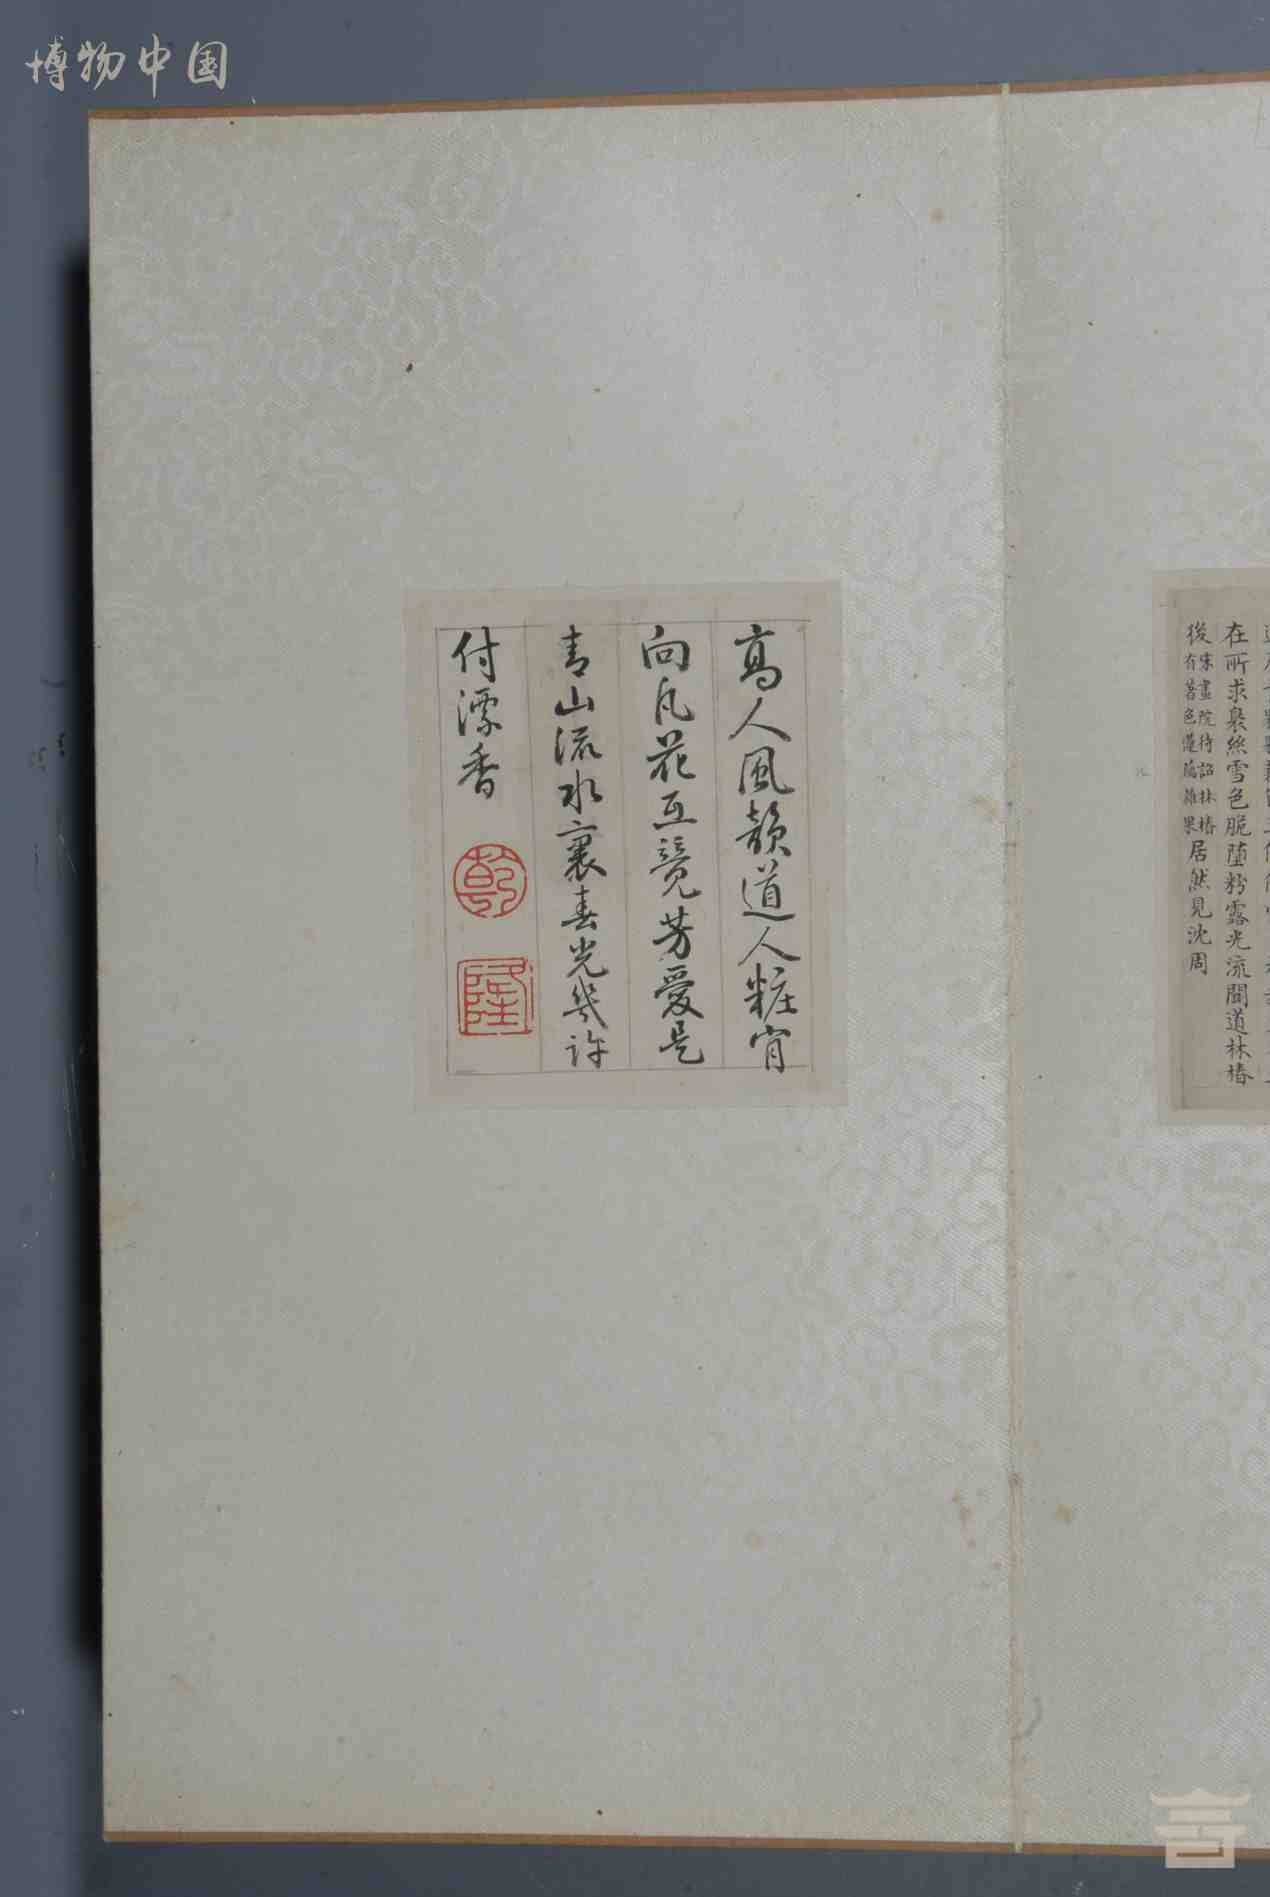 博物中国
在所求裊絲雪色脆墮粉露光流聞道林椿
後宋畫院待詔林椿有著色蓮藕雜果居然見沈周
高人風韻道人粧肯
向凡花互競芳愛是
青山流水裏春光幾許
付漂香
乾
隆